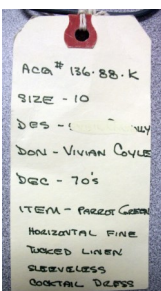 ACQ # 136.88.K
SIZE - 10
DES -
DON - VIVIAN COYLE
DEC - 70's
ITEM - PARROT GREEN
HORIZONTAL FINE
TUCKED LINEN
SLEEVELESS
COCKTAIL DRESS